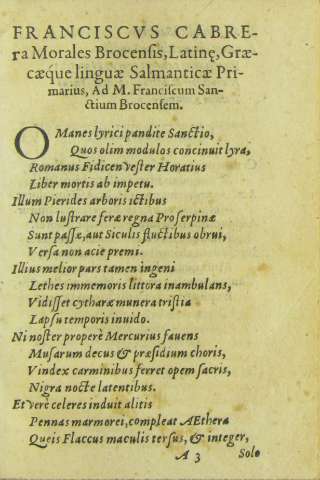 FRANCISCVS CABRE-
ra Morales Brocensis, Latinę, Græ-
cæque linguæ Salmanticæ Pri-
marius, Ad M. Franciscum San-
ctium Brocensem.
O Manes lyrici pandite Sanctio,
Quos olim modulos concinuit lyra,
Romanus Fidicen vester Horatius
Liber mortis ab impetu.
Illum Pierides arboris ictibus
Non lustrare feræ regna Proserpinæ
Sunt passæ, aut Siculis fluctibus obrui,
Versa non acie premi.
Illius melior pars tamen ingeni
Lethes immemoris littora inambulans,
Vidisset cytharæ munera tristia
Lapsu temporis inuido.
Ni noster properè Mercurius fauens
Musarum decus & præsidium choris,
Vindex carminibus ferret opem sacris,
Nigra nocte latentibus.
Et verè celeres induit alitis
Pennas marmorei, compleat AEthera
Queis Flaccus maculis tersus, & integer,
A 3 Solo